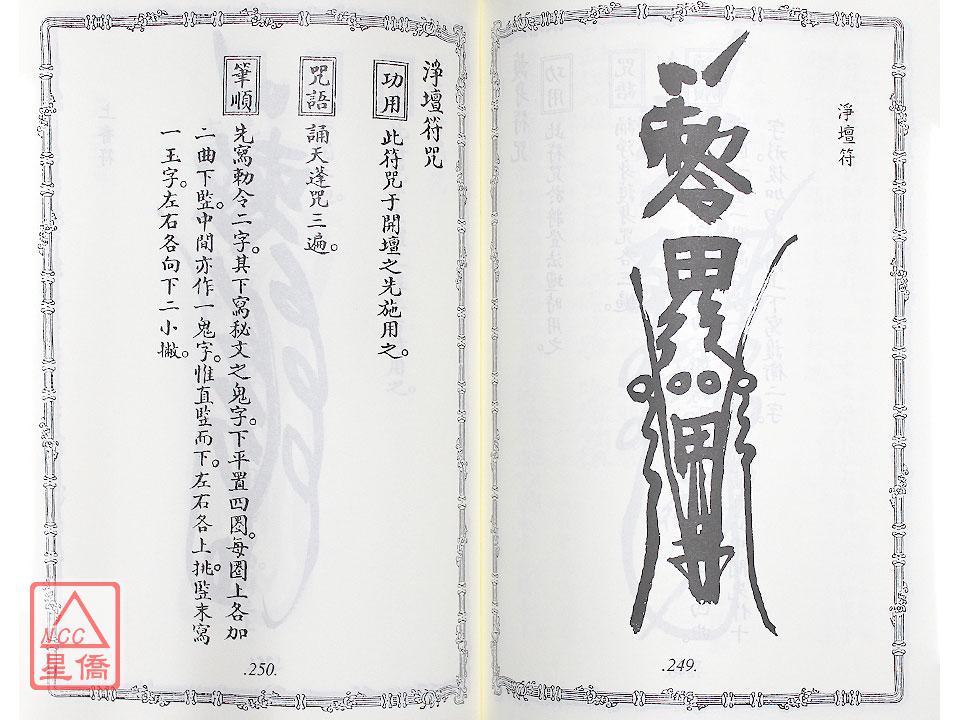 淨壇符
.249.
淨壇符咒
功用
此符咒于開壇之先施用之。
咒語
誦天蓬咒三遍。
筆順
先寫勅令二字。其下寫秘文之鬼字。下平置四圈。每圈上各加
二曲下竪。中間亦作一鬼字。惟直竪而下。左右各上挑。竪末寫
一玉字。左右各向下二小撇。
.250.
NCC
星僑